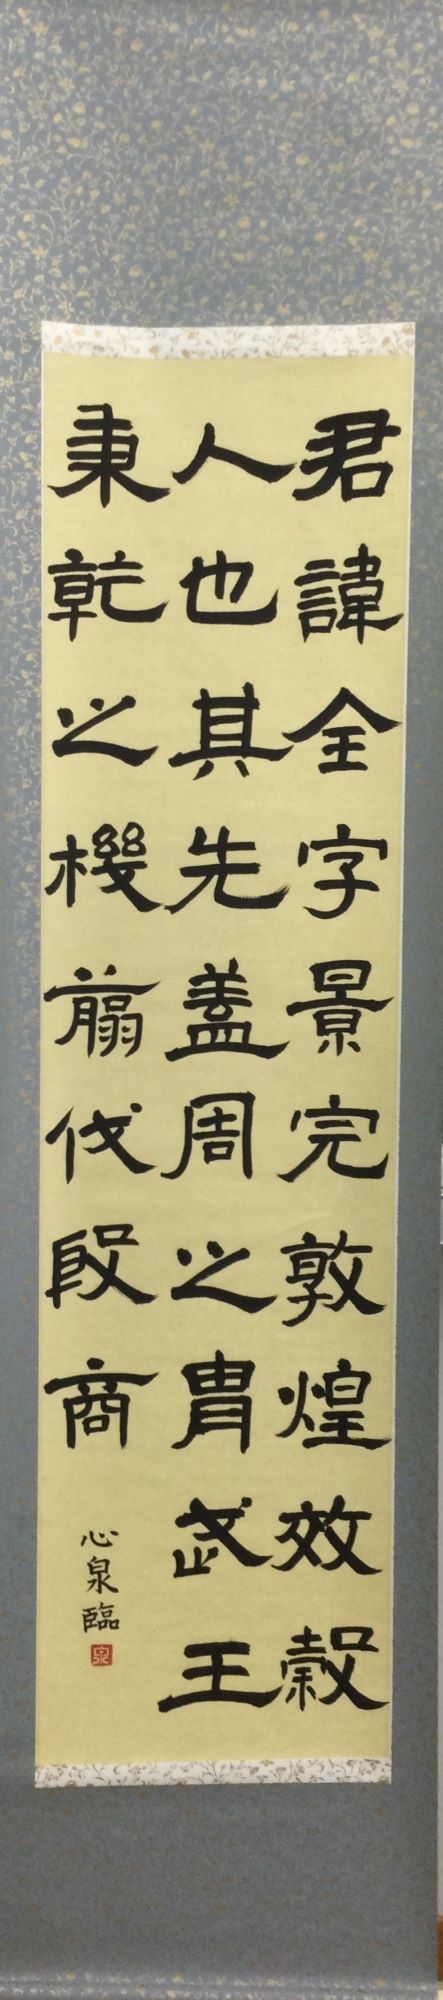 君諱全字景完敦煌效穀
人也其先蓋周之胄武王
秉乾之機翦伐殷商
心泉臨